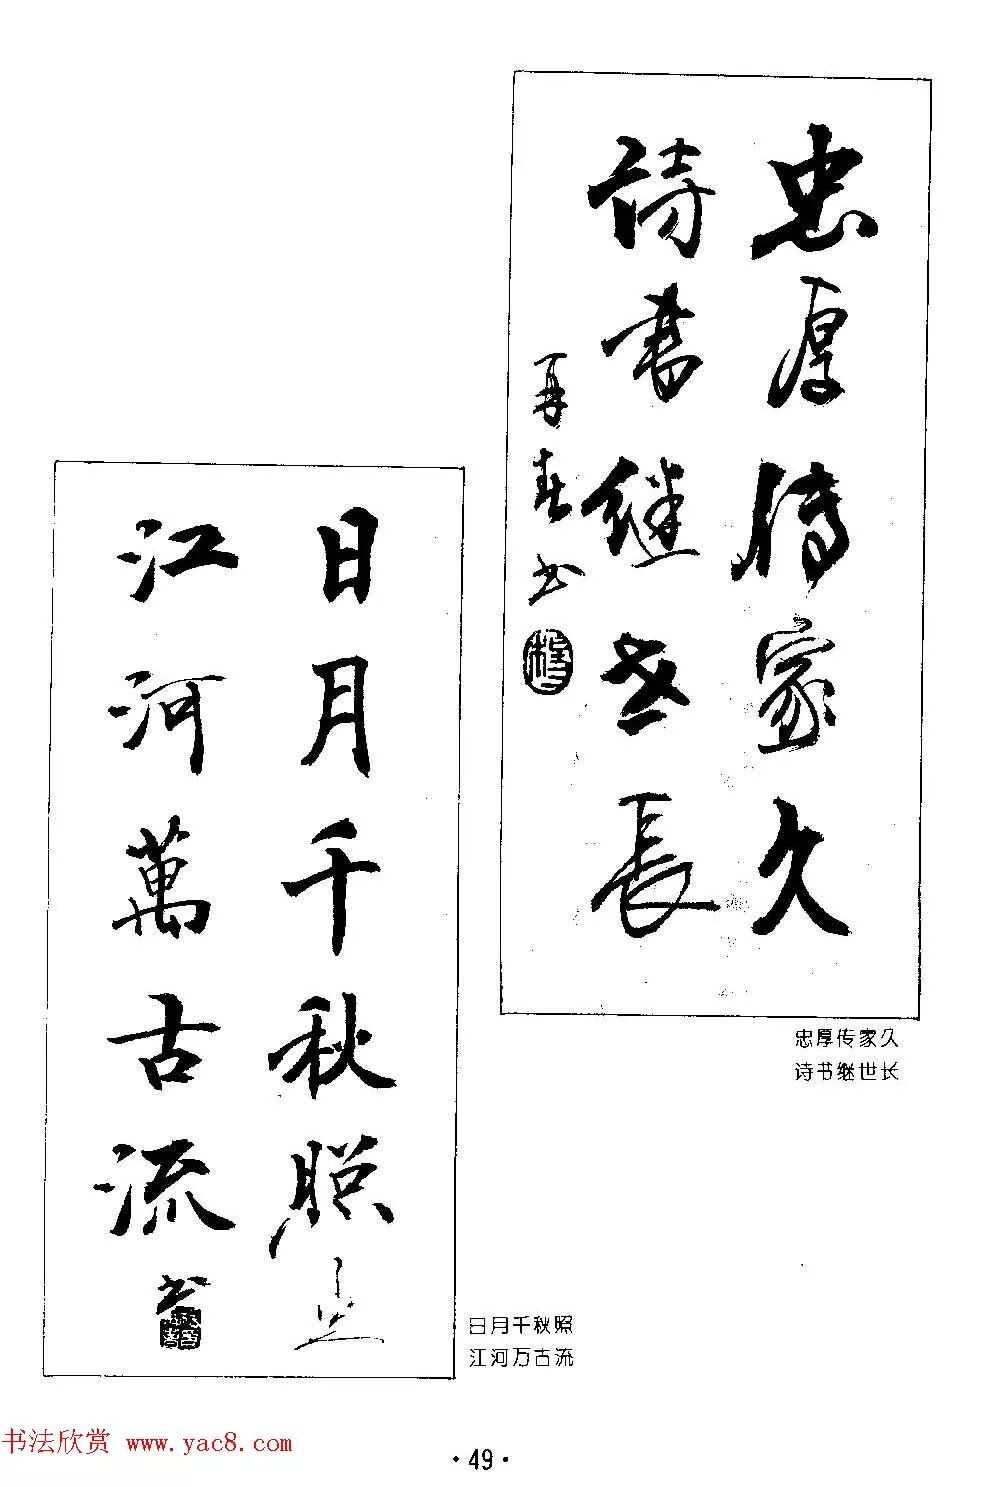 忠厚傳家久
詩書继世長
夏春书
忠厚传家久
诗书继世长
日月千秋照
江河萬古流
书
日月千秋照
江河万古流
书法欣赏 www.yac8.com
·49·